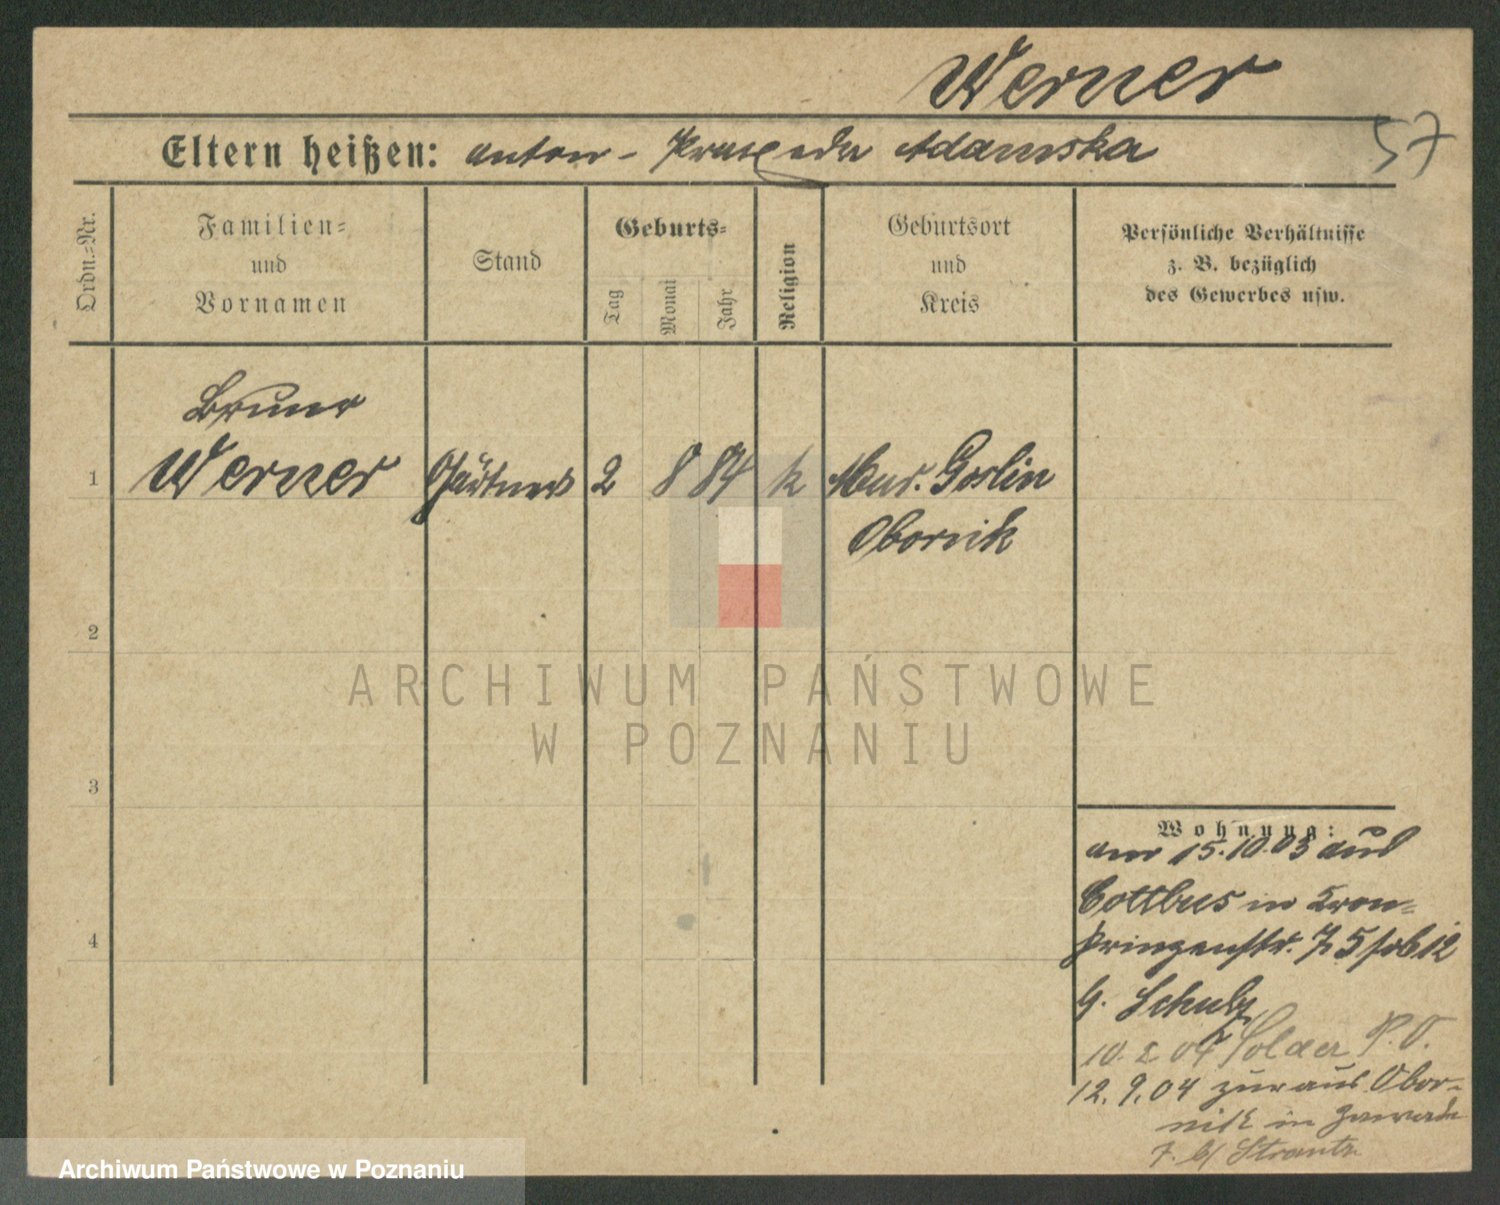 Werner
57
Eltern heißen: Anton - Praxeda Adamska
Ordn.-Nr.
Familien-
und
Vornamen
Stand
Geburts-
Tag
Monat
Jahr
Religion
Geburtsort
und
Kreis
Persönliche Verhältnisse
z. B. bezüglich
des Gewerbes usw.
Bruno
1 Werner Gärtner 2 8 84 k Mur. Goslin
Obornik
2
3
4
Wohnung:
am 15.10.03 aus
Cottbus in Kron-
prinzenstr. 75
G. Schulz
10. 04
12.9.04 zur aus Obor-
nik in Zawade
7. b/ Strantz
ARCHIWUM PAŃSTWOWE
W POZNANIU
Archiwum Państwowe w Poznaniu